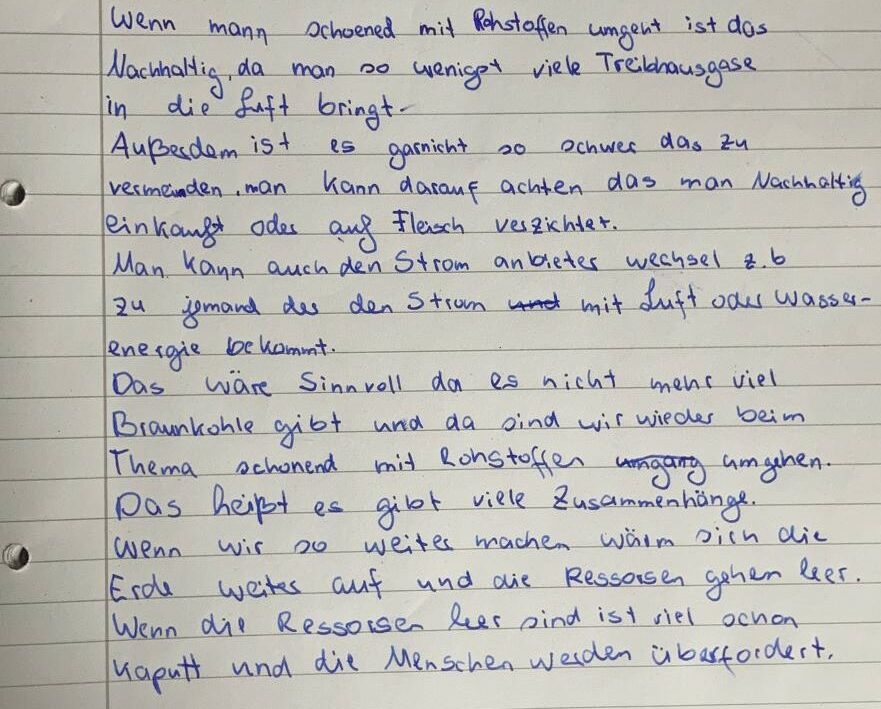 Wenn mann schoened mit Rohstoffen umgeht ist das
Nachhaltig, da man so wenigst viele Treibhausgase
in die Luft bringt.
Außerdem ist es garnicht so schwer das zu
vermeiden, man kann darauf achten das man Nachhaltig
einkauft oder auf Fleisch verzichtet.
Man kann auch den Strom anbieter wechsel z.b
zu jemand der den Strom und mit Luft oder Wasser-
energie bekommt.
Das wäre Sinnvoll da es nicht mehr viel
Braunkohle gibt und da sind wir wieder beim
Thema schonend mit Rohstoffen umgang umgehen.
Das heißt es gibt viele Zusammenhänge.
Wenn wir so weiter machen wärm sich die
Erde weiter auf und die Ressorsen gehen leer.
Wenn die Ressorsen leer sind ist viel schon
kaputt und die Menschen werden überfordert.